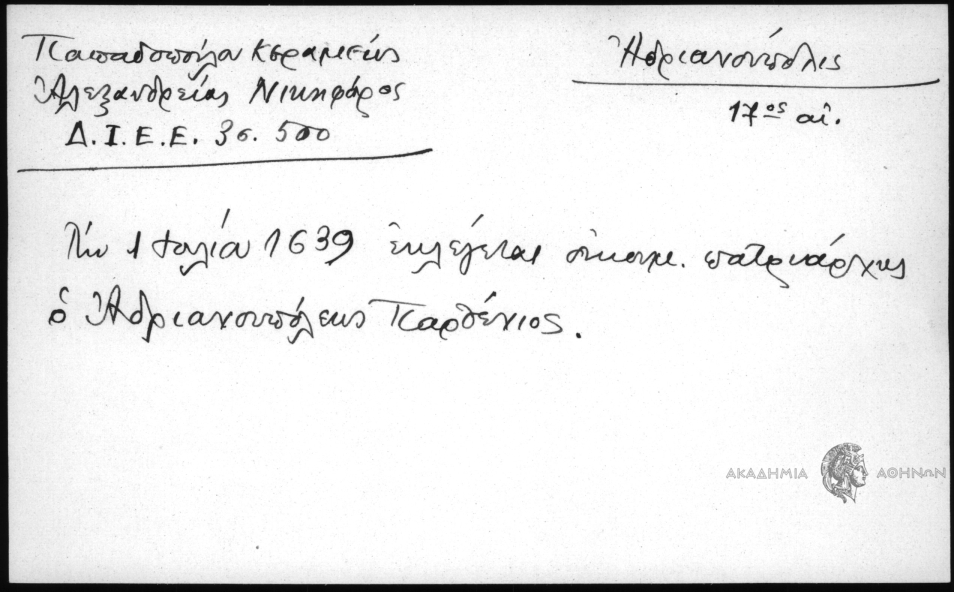 Παπαδοπούλου Κεραμεύς
Ἀλεξανδρείας Νικηφόρος
Δ.Ι.Ε.Ε. 3ς. 500
Ἀδριανούπολις
17ος αἰ.
Τήν 1 Ἰουλίου 1639 ἐκλέγεται οἰκουμ. πατριάρχης
ὁ Ἀδριανουπόλεως Παρθένιος.
ΑΚΑΔΗΜΙΑ ΑΘΗΝΩΝ